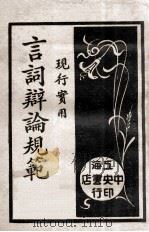 現行實用
言詞辯論規範
上海
中央書店
印行